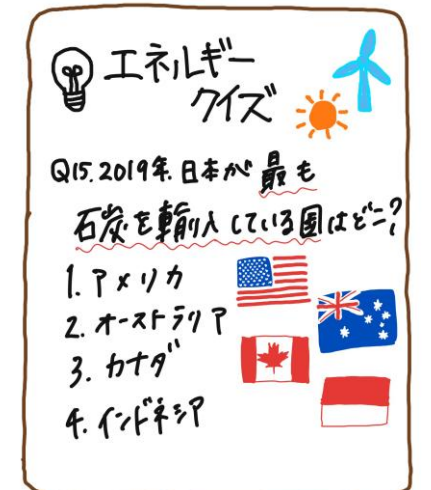 エネルギー
クイズ
Q15.2019年.日本が最も
石炭を輸入している国はどこ?
1.アメリカ
2.オーストラリア
3.カナダ
4.インドネシア